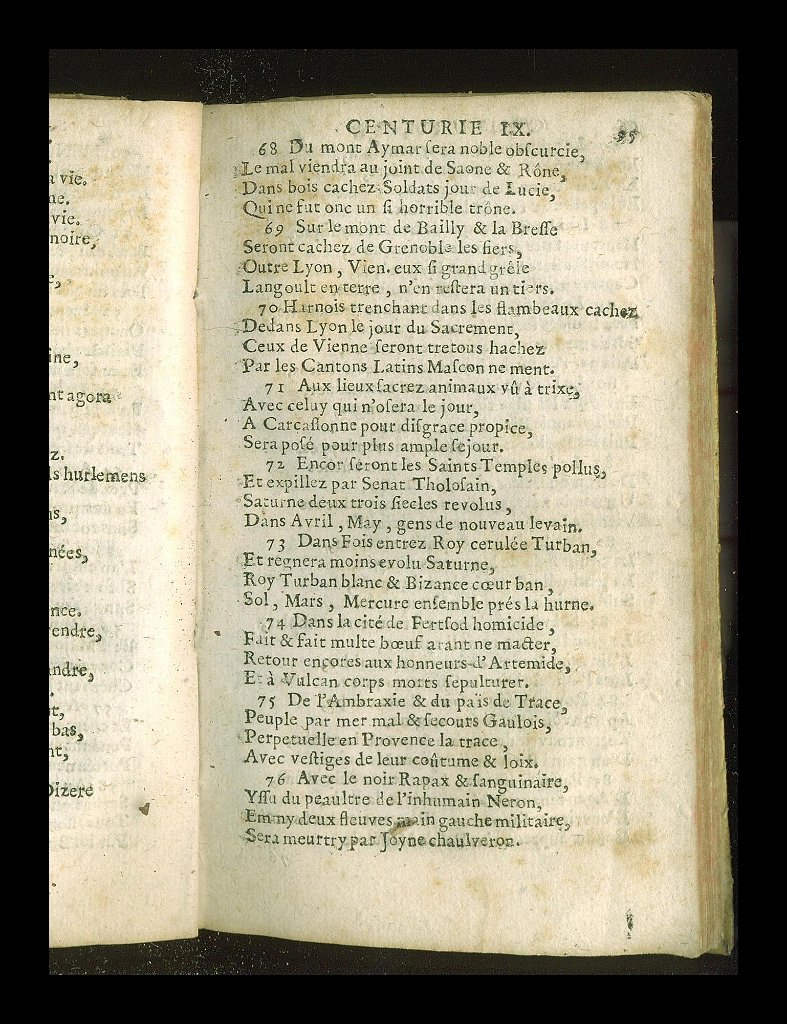 a vie.
ne.
vie.
noire,
e,
ine,
nt agora
z.
s hurlemens
ns,
nées,
nce.
endre,
ndre,
et,
bas,
nt,
Dizere
CENTURIE IX. 95
68 Du mont Aymar ſera noble obſcurcie,
Le mal viendra au joint de Saone & Rône,
Dans bois cachez Soldats jour de Lucie,
Qui ne fut onc un ſi horrible trône.
69 Sur le mont de Bailly & la Breſſe
Seront cachez de Grenoble les fiers,
Outre Lyon, Vien. eux ſi grand grêle
Langoult en terre, n'en reſtera un tiers.
70 Harnois trenchant dans les flambeaux cachez
Dedans Lyon le jour du Sacrement,
Ceux de Vienne ſeront tretous hachez
Par les Cantons Latins Maſcon ne ment.
71 Aux lieux ſacrez animaux vû à trixe,
Avec celuy qui n'oſera le jour,
A Carcaſſonne pour diſgrace propice,
Sera poſé pour plus ample ſejour.
72 Encor ſeront les Saints Temples pollus,
Et expillez par Senat Tholoſain,
Saturne deux trois ſiecles revolus,
Dans Avril, May, gens de nouveau levain.
73 Dans Fois entrez Roy cerulée Turban,
Et regnera moins evolu Saturne,
Roy Turban blanc & Bizance cœur ban,
Sol, Mars, Mercure enſemble prés la hurne.
74 Dans la cité de Fertſod homicide,
Fait & fait multe bœuf arant ne macter,
Retour encores aux honneurs d'Artemide,
Et à Vulcan corps morts ſepulturer.
75 De l'Ambraxie & du païs de Trace,
Peuple par mer mal & ſecours Gaulois,
Perpetuelle en Provence la trace,
Avec veſtiges de leur coûtume & loix.
76 Avec le noir Rapax & ſanguinaire,
Yſſu du peaultre de l'inhumain Neron,
Emmy deux fleuves main gauche militaire,
Sera meurtry par Joyne chaulveron.